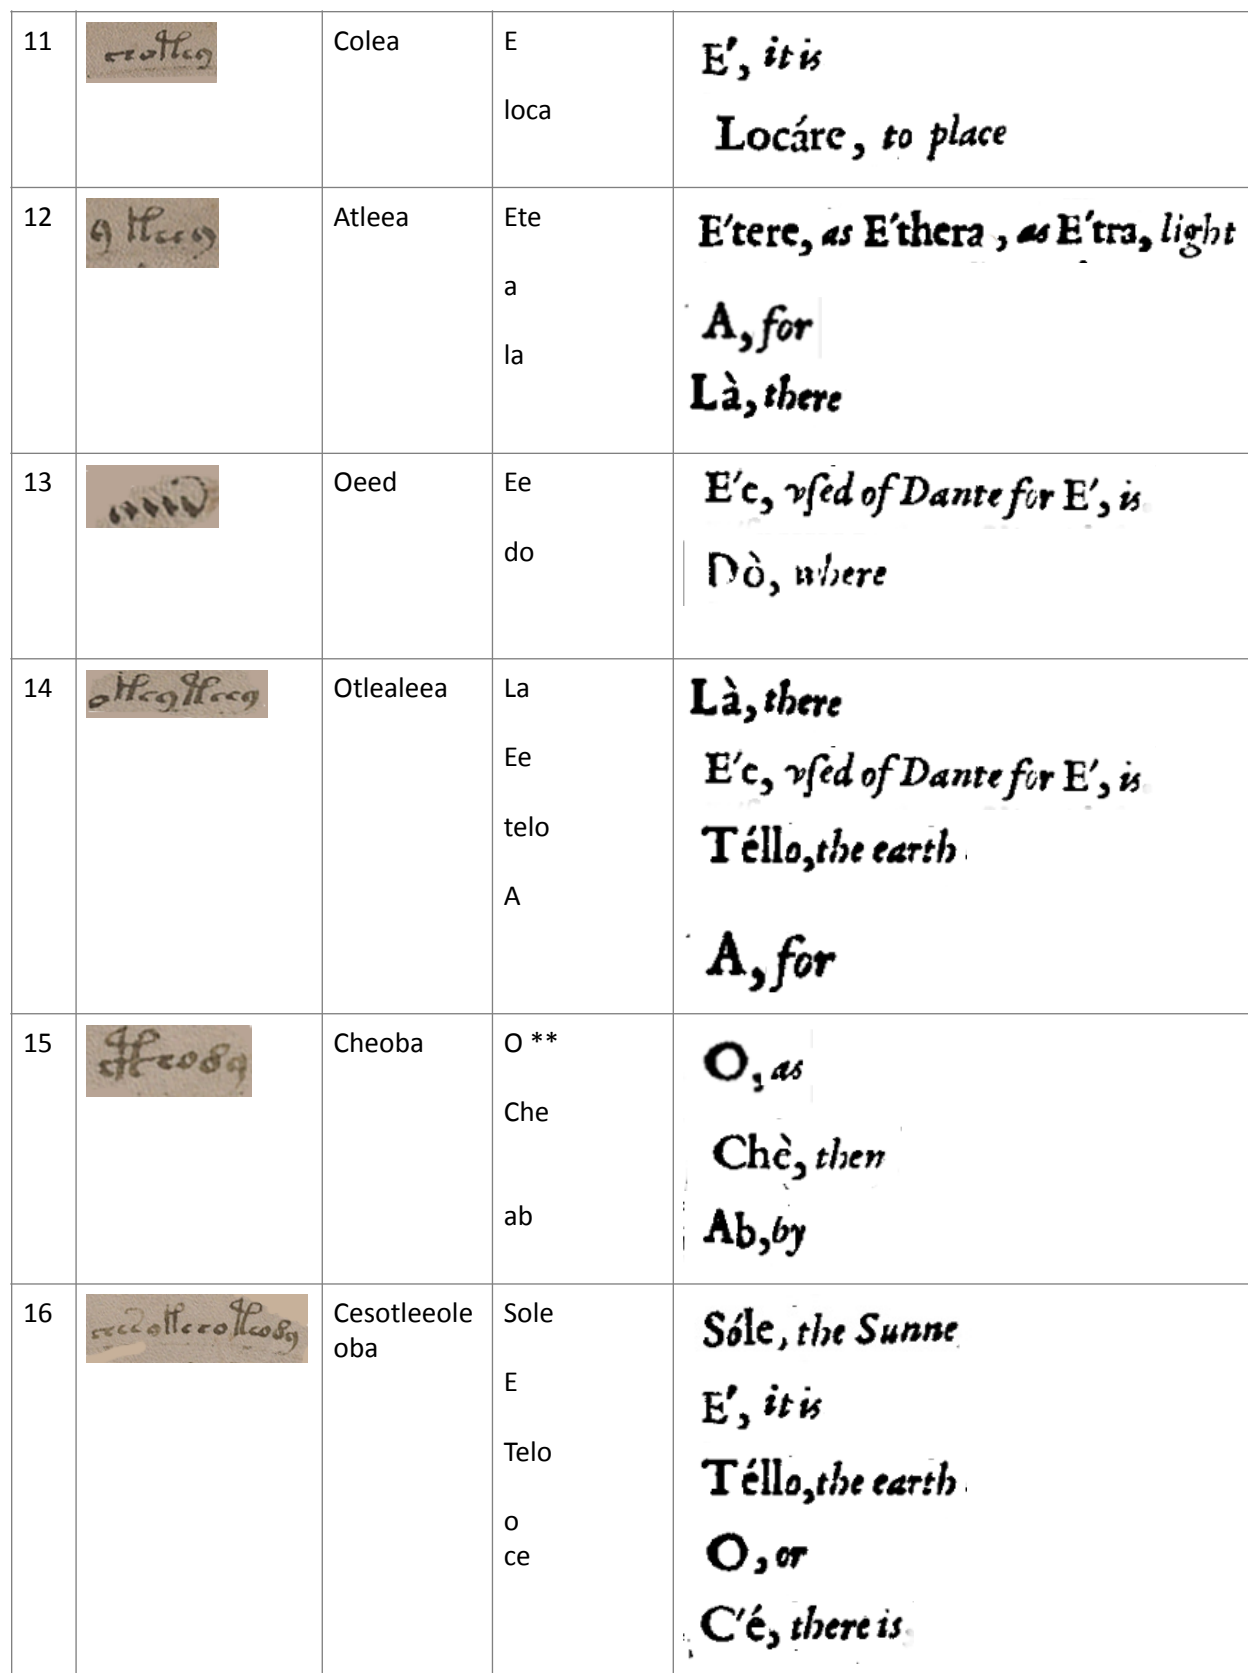 11
Colea
E
loca
E', it is
Locáre, to place
12
Atleea
Ete
a
la
E'tere, as E'thera, as E'tra, light
A, for
Là, there
13
Oeed
Ee
do
E'e, vſed of Dante for E', is
Dò, where
14
Otlealeea
La
Ee
telo
A
Là, there
E'e, vſed of Dante for E', is
Téllo, the earth
A, for
15
Cheoba
O **
Che
ab
O, as
Chè, then
Ab, by
16
Cesotleeole
oba
Sole
E
Telo
o
ce
Sóle, the Sunne
E', it is
Téllo, the earth
O, or
C'é, there is